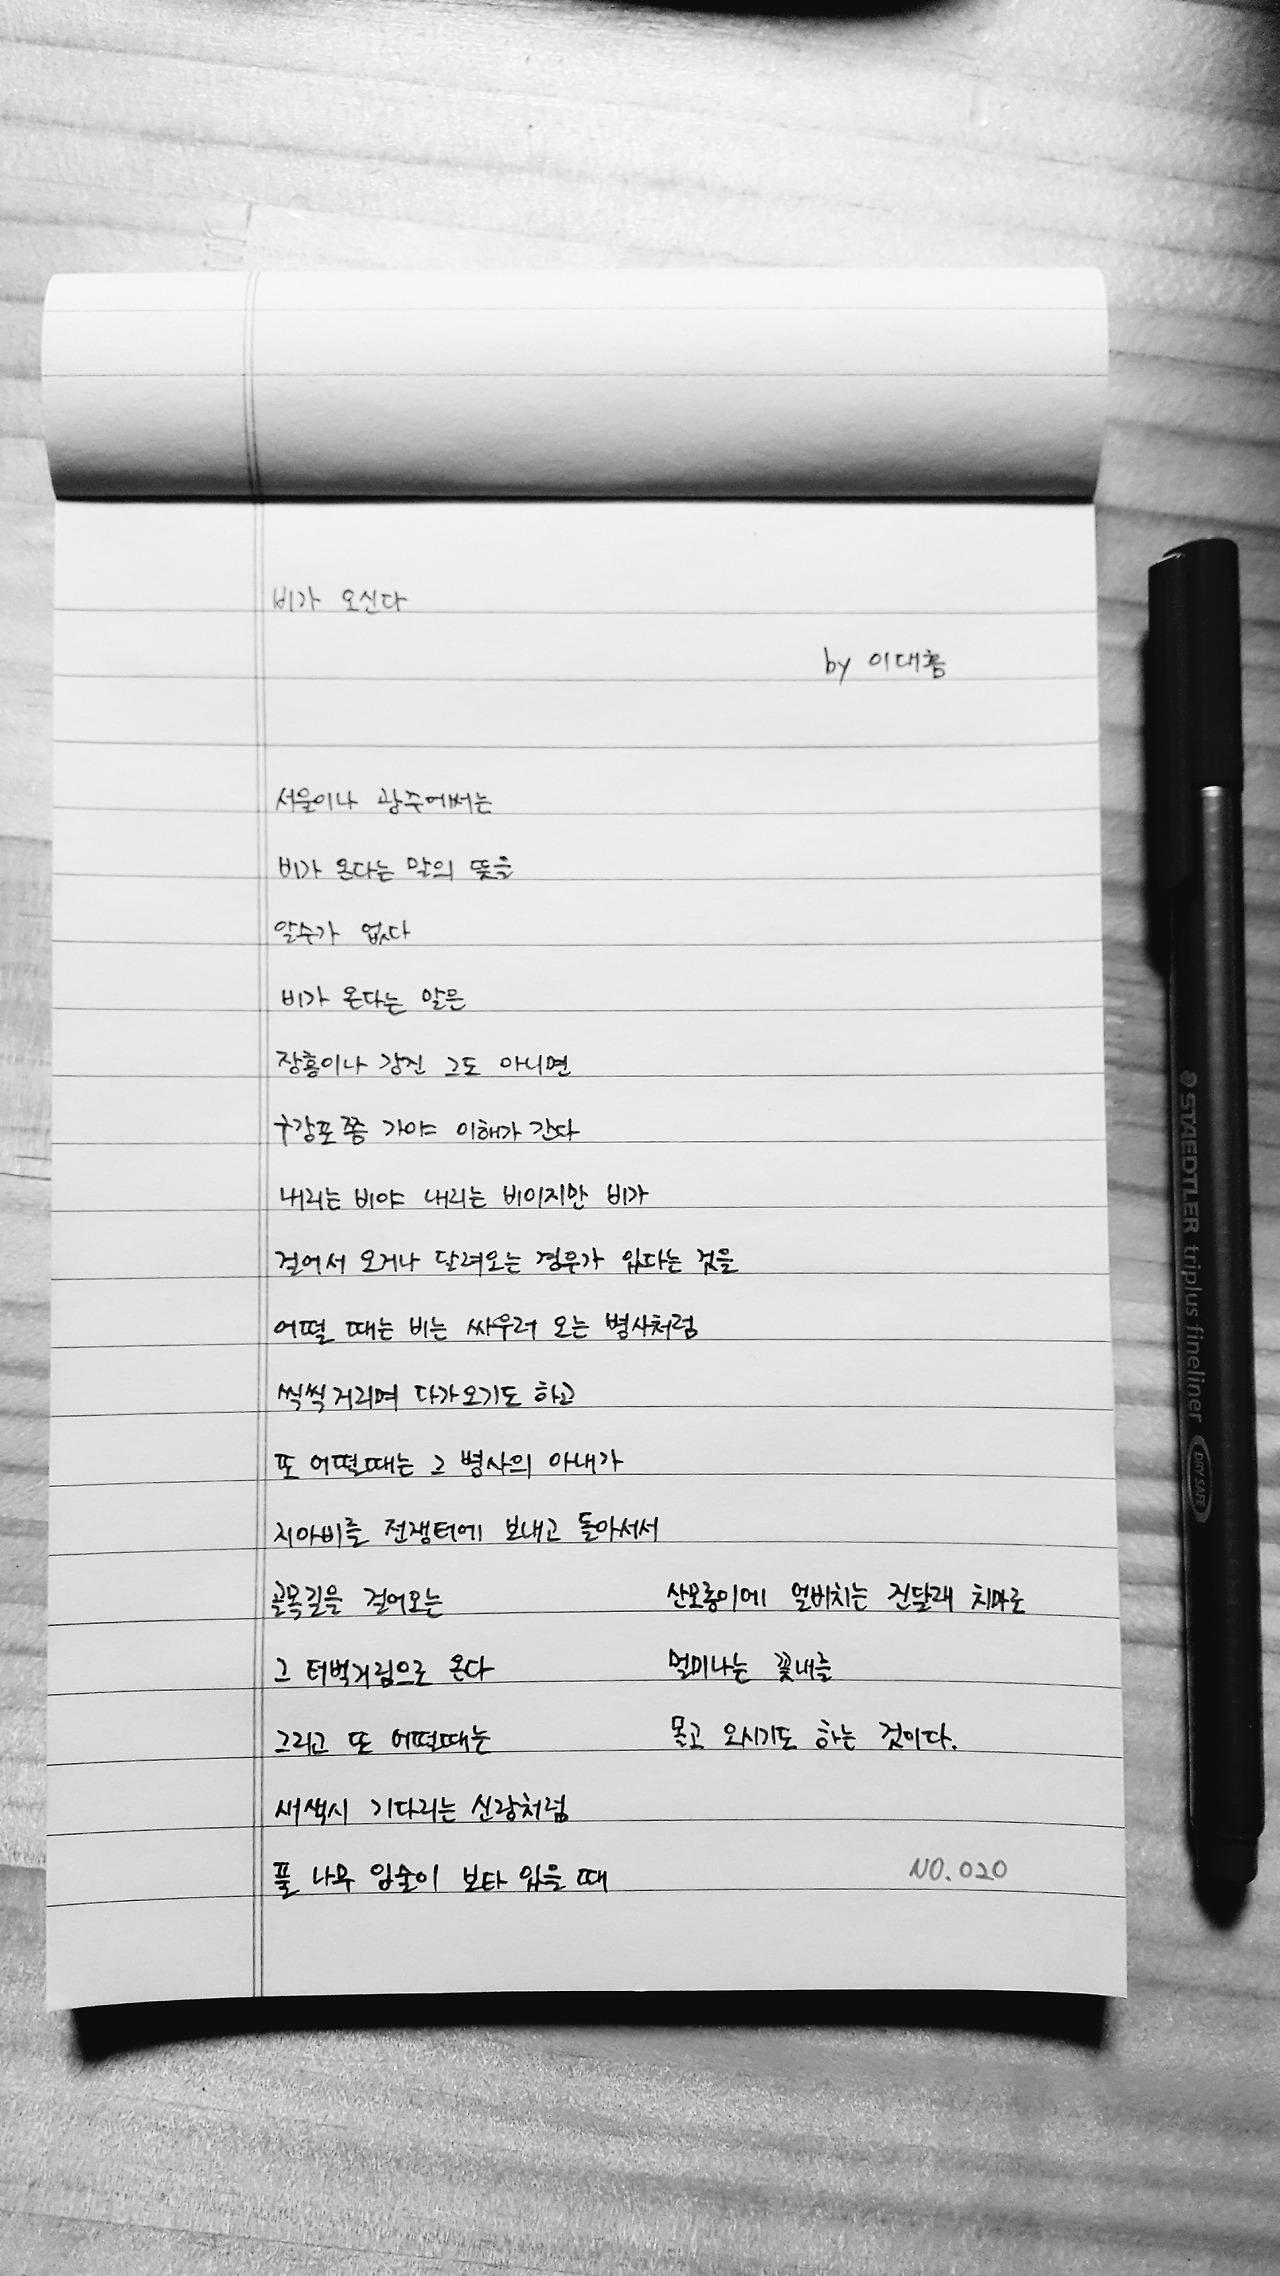 비가 오신다
by 이대흠
서울이나 광주에서는
비가 온다는 말의 뜻을
알수가 없다
비가 온다는 말은
장흥이나 강진 그도 아니면
구강포쯤 가야 이해가 간다
내리는 비야 내리는 비이지만 비가
걸어서 오거나 달려오는 경우가 있다는 것을
어떨 때는 비는 싸우러 오는 병사처럼
씩씩거리며 다가오기도 하고
또 어떨때는 그 병사의 아내가
지아비를 전쟁터에 보내고 돌아서서
골목길을 걸어오는
그 터벅거림으로 온다
그리고 또 어떨때는
새색시 기다리는 신랑처럼
풀 나무 입술이 보타 있을 때
산모롱이에 얼비치는 진달래 치마로
멀미나는 꽃내를
몰고 오시기도 하는 것이다.
NO.020
STAEDTLER triplus fineliner
DRY SAFE